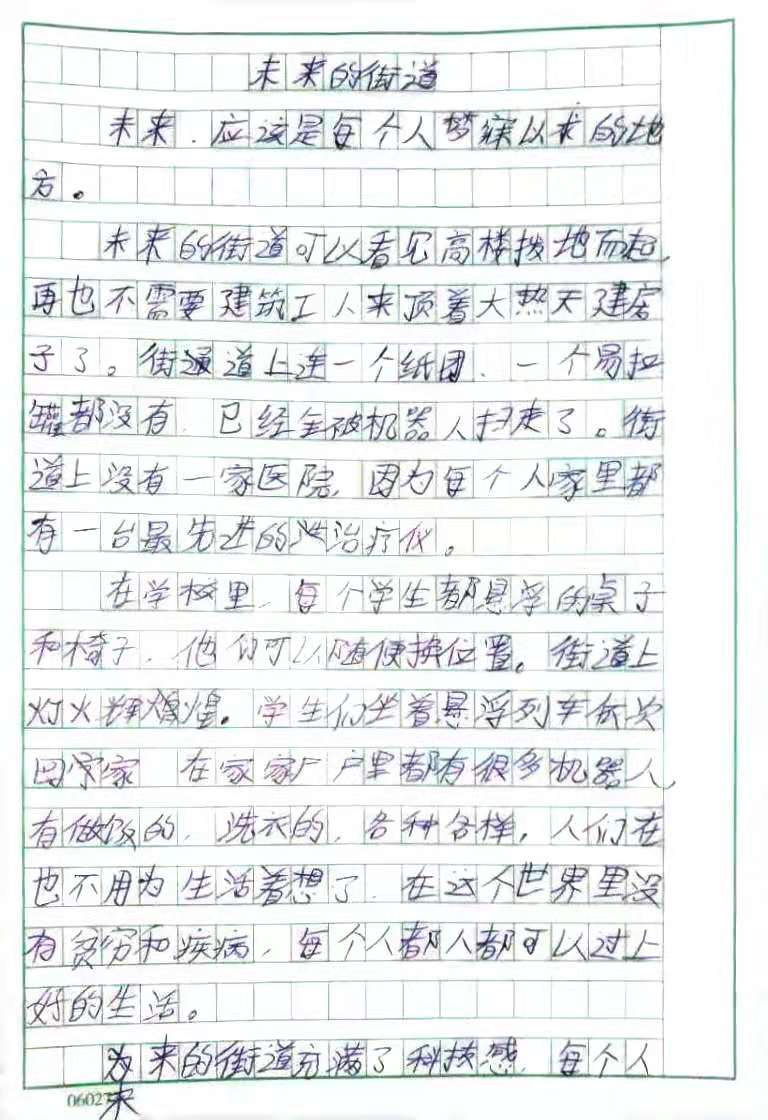 未来的街道
未来，应该是每个人梦寐以求的地
方。
未来的街道可以看见高楼拨地而起，
再也不需要建筑工人来顶着大热天建房
子了。街道上连一个纸团、一个易拉
罐都没有，已经全被机器人扫走了。街
道上没有一家医院，因为每个人家里都
有一台最先进的治疗仪。
在学校里，每个学生都悬浮的桌子
和椅子，他们可以随便换位置。街道上
灯火辉煌。学生们坐着悬浮列车依次
回家 在家家户户里都有很多机器人，
有做饭的，洗衣的，各种各样，人们在
也不用为生活着想了，在这个世界里没
有贫穷和疾病，每个人都人都可以过上
好的生活。
未来的街道充满了科技感，每个人
0602